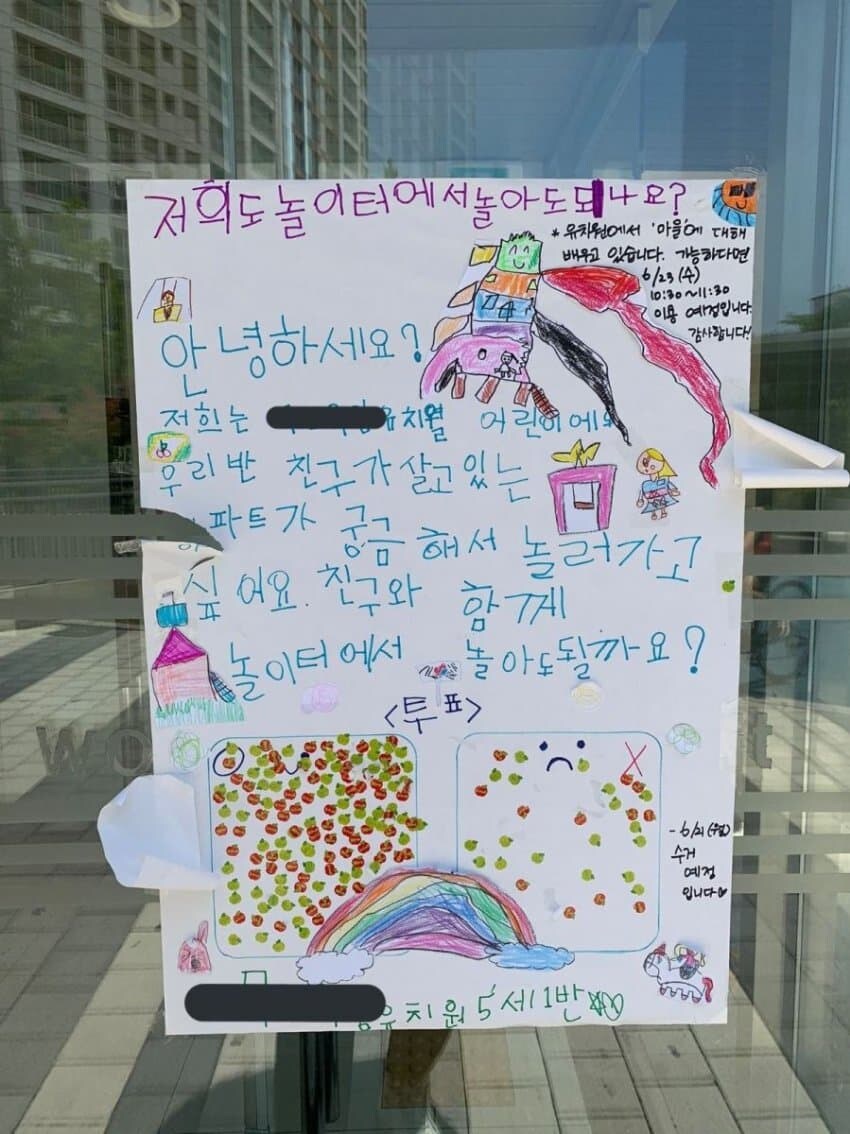 저희도 놀이터에서 놀아도 되나요?
* 유치원에서 '마을'에 대해
배우고 있습니다. 가능하다면
6/23 (수)
10:30~11:30
이용 예정입니다.
감사합니다!
안녕하세요?
저희는 유치원 어린이에요
우리반 친구가 살고있는
파트가 궁금해서 놀러가고
싶어요. 친구와 함께
놀이터에서 놀아도될까요?
<투표>
O X
- 6/21 (월)
수거
예정
입니다♡
유치원 5세1반